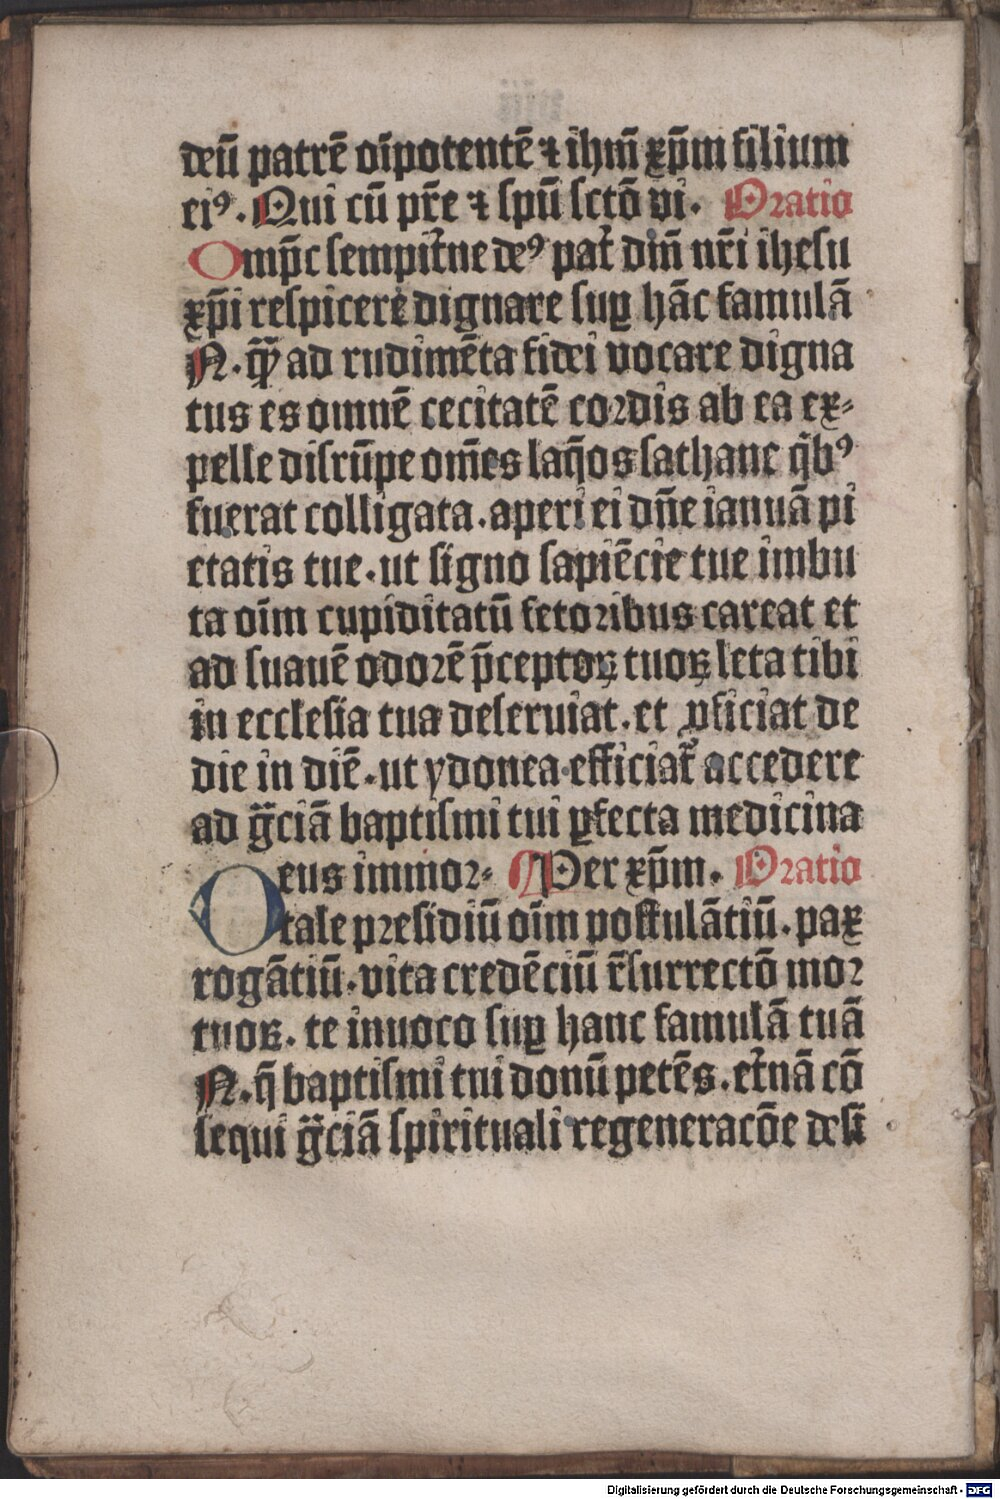 deū patrē oīpotentē ⁊ ihm̄ xp̄m filium
eiꝰ. Qui cū pr̄e ⁊ spū sctō vi. Oratio
Omp̄c sempit̄ne deꝰ pat̄ dm̄ nr̄i ihesu
xp̄i respicere dignare suꝑ hāc famulā
N. qͫ ad rudimēta fidei vocare digna
tus es omnē cecitatē coꝛdis ab ea ex⸗
pelle disrūpe om̄es laq̄os sathane q̄bꝰ
fuerat colligata. aperi ei dn̄e ianuā pi
etatis tue. ut signo sapiēcie tue imbu
ta oīm cupiditatū fetoꝛibus careat et
ad suauē odoꝛē p̄ceptoꝝ tuoꝝ leta tibi
in ecclesia tua deseruiat. et ꝓficiat de
die in diē. ut ydonea efficiat᷑ accedere
ad gͣciā baptismi tui ꝑfecta medicina
Deus immoꝛ⸗ Per xp̄m. Oratio
tale pꝛesidiū oīm postulātiū. pax
rogātiū. vita credēciū r̄surrectō moꝛ
tuoꝝ. te inuoco suꝑ hanc famulā tuā
N. q̄ baptismi tui donū petēs. et̄nā cō
sequi gͣciā spirituali regeneracōe desi
Digitalisierung gefördert durch die Deutsche Forschungsgemeinschaft - DFG